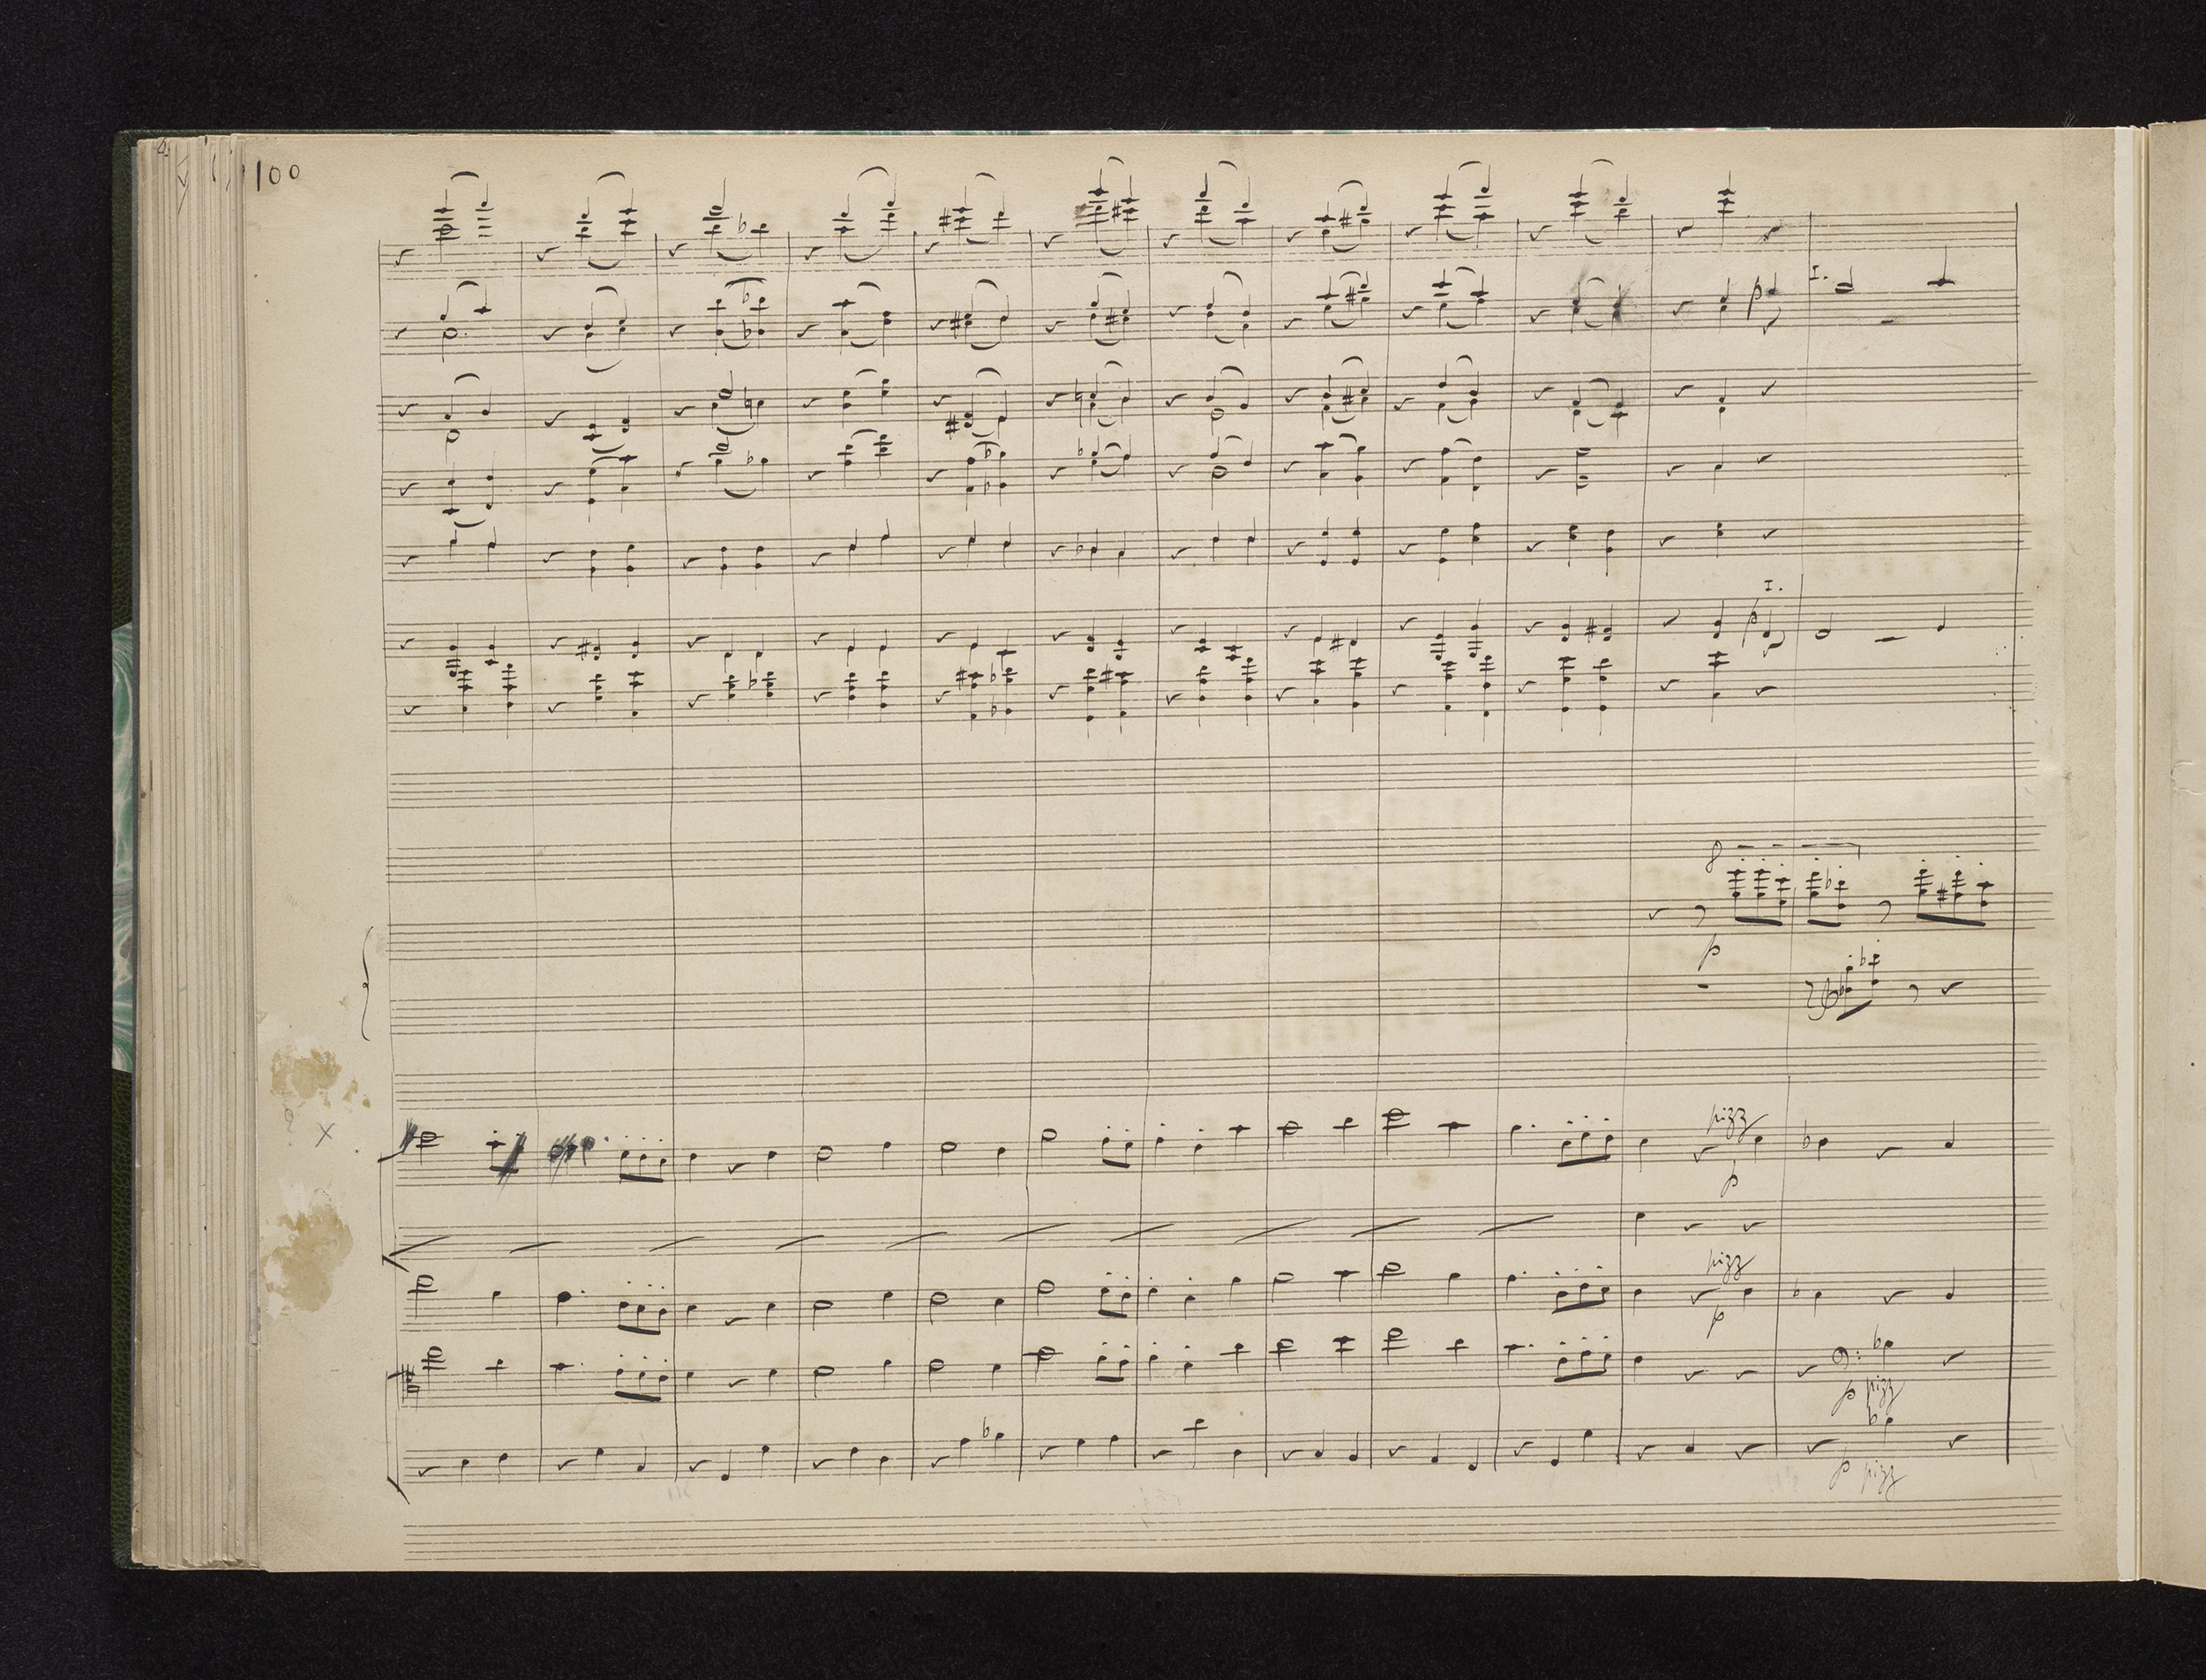 100
I.
p
I.
p
8
p
? x
pizz
p
pizz
p
p pizz
p pizz